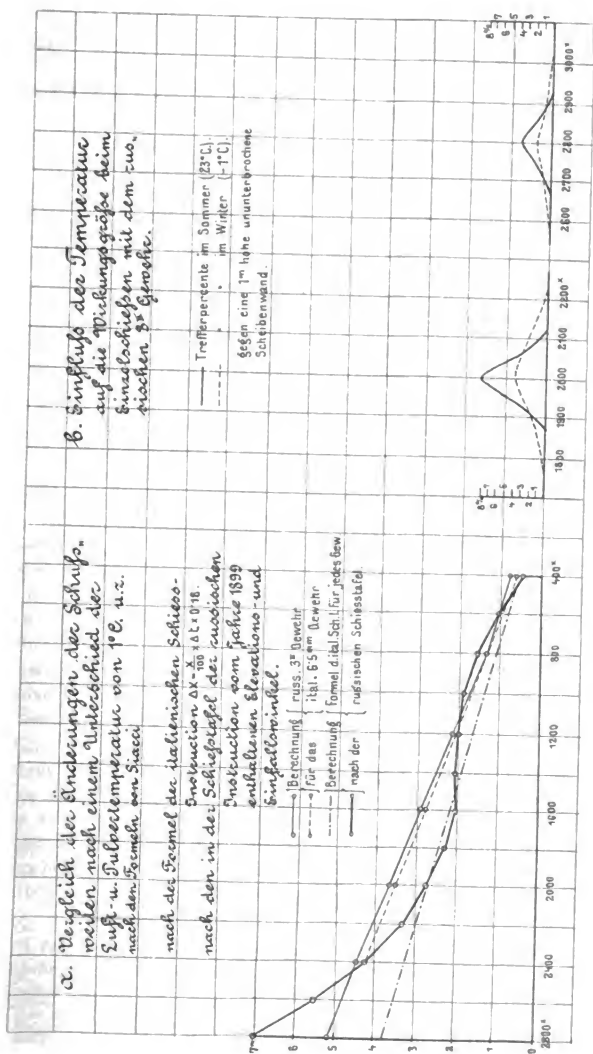 a. Vergleich der Änderungen der Schuß„
weiten nach einem Unterschied der
Luft- u. Pulvertemperatur von 1°C. u.z.
nach den Formeln von Siacci
nach der Formel der italienischen Schiess-
Instruction ΔX = X/100 × Δt × 0·18.
nach den in der Schießtafel der russischen
Instruction vom Jahre 1899
enthaltenen Elevations- und
Einfallswinkel.
Berechnung russ. 3‴ Gewehr
für das ital. 6·5 mm Gewehr
Berechnung Formel d. ital. Sch. I. für jedes Gew
nach der russischen Schiesstafel
7
6
5
4
3
2
1
0
2800ˣ
2400
2000
1600
1200
800
400ˣ
b. Einfluß der Temperatur
auf die Wirkungsgröße beim
Einzelschießen mit dem rus„
sischen 3‴ Gewehr.
Trefferpercente im Sommer (23°C.)
" " im Winter (-1°C).
gegen eine 1m hohe ununterbrochene
Scheibenwand.
8%
7
6
5
4
3
2
1
1800
1900
2000
2100
2200ˣ
2600
2700
2800
2900
3000ˣ
8%
7
6
5
4
3
2
1